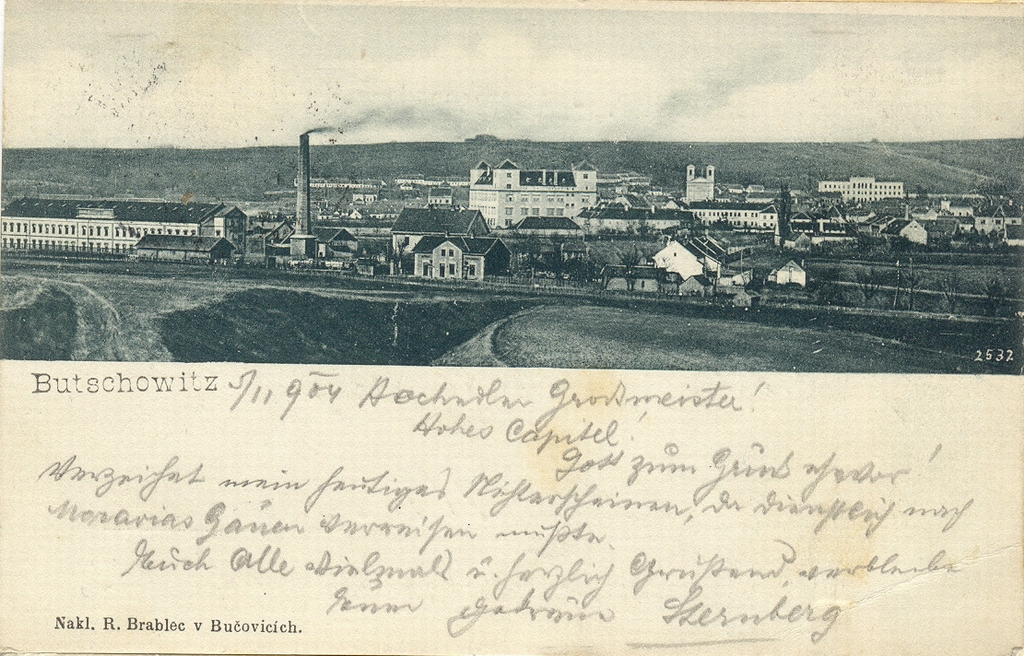 2532
Butschowitz 5/11 904 Hochedler Großmeister!
Hohes Capitel!
Gott zum Gruß
Verzeihet mein heutiges Nichterscheinen, da dienstlich nach
Moravias Gauen verreisen mußte.
Euch Alle vielmals u. herzlich Grüßend, verbleibe
Euer Sternberg
Nakl. R. Brablec v Bučovicích.